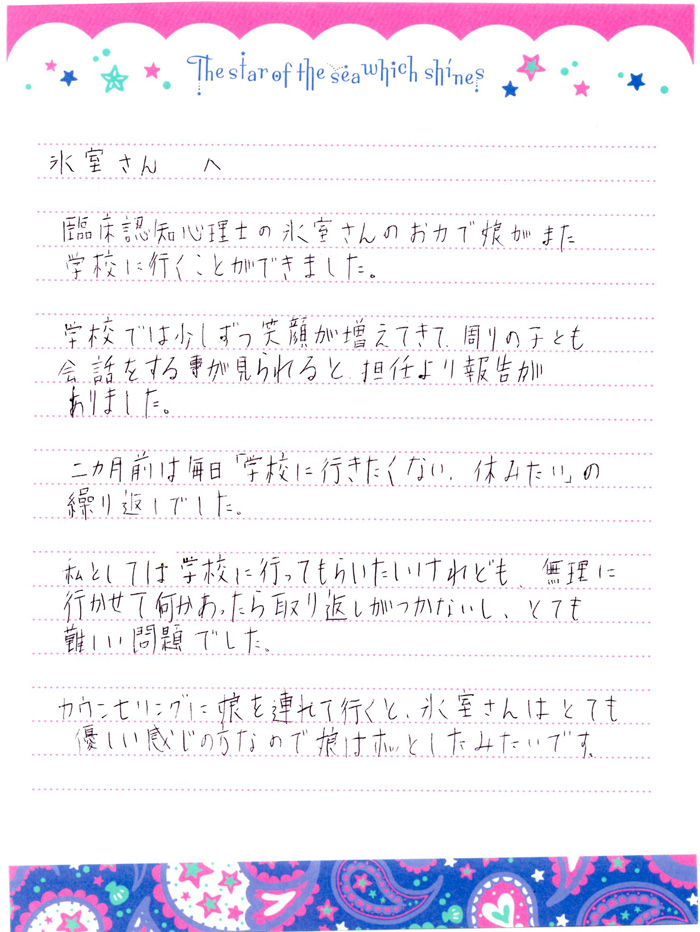 The star of the sea which shines
氷室さん へ
臨床認知心理士の氷室さんのお力で娘がまた
学校に行くことができました。
学校では少しずつ笑顔が増えてきて、周りの子とも
会話をする事が見られると、担任より報告が
ありました。
二カ月前は毎日「学校に行きたくない、休みたい」の
繰り返しでした。
私としては学校に行ってもらいたいけれども、無理に
行かせて何かあったら取り返しがつかないし、とても
難しい問題でした。
カウンセリングに娘を連れて行くと、氷室さんはとても
優しい感じの方なので娘はホッとしたみたいです。